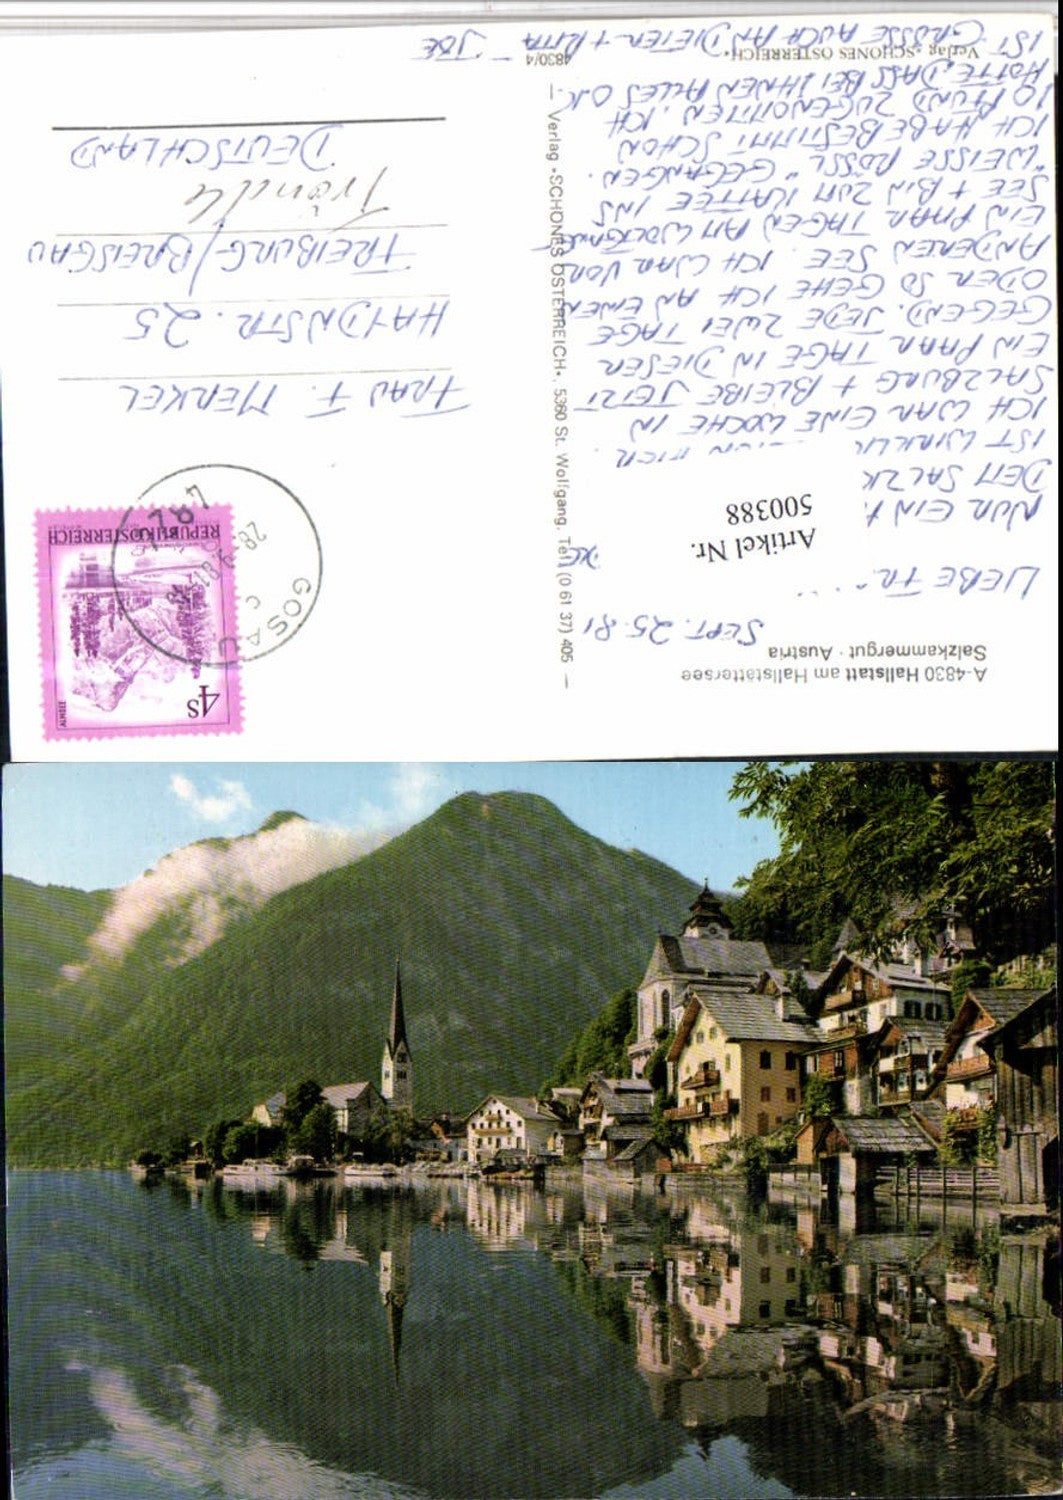 A-4830 Hallstatt am Hallstättersee
Salzkammergut · Austria
SEPT. 25. 81
LIEBE FR
Artikel Nr.
500388
NUR EIN
DEM SALZK
IST WIRKLI
ICH WAR EINE WOCHE IN
SALZBURG + BLEIBE JETZT
EIN PAAR TAGE IN DIESER
GEGEND. JEDE ZWEI TAGE
ODER SO GEHE ICH AN EINEN
ANDEREN SEE. ICH WAR VOR
EIN PAAR TAGEN AM WOLFGANG
SEE + BIN ZUM KAFFEE INS
"WEISSE RÖSSL" GEGANGEN.
ICH HABE BESTIMMT SCHON
10 PFUND ZUGENOMMEN. ICH
HOFFE, DASS BEI IHNEN ALLES O.K.
IST. GRÜSSE AUCH AN DIETER + RITA - JOE
Verlag »SCHÖNES ÖSTERREICH«
4830/4
— Verlag »SCHÖNES ÖSTERREICH«, 5360 St. Wolfgang, Tel. (0 61 37) 405 —
4S
ALMSEE
REPUBLIK ÖSTERREICH
GOSAU
28.-9.81
FRAU F. MERKEL
HAYDNSTR. 25
FREIBURG/BREISGAU
DEUTSCHLAND